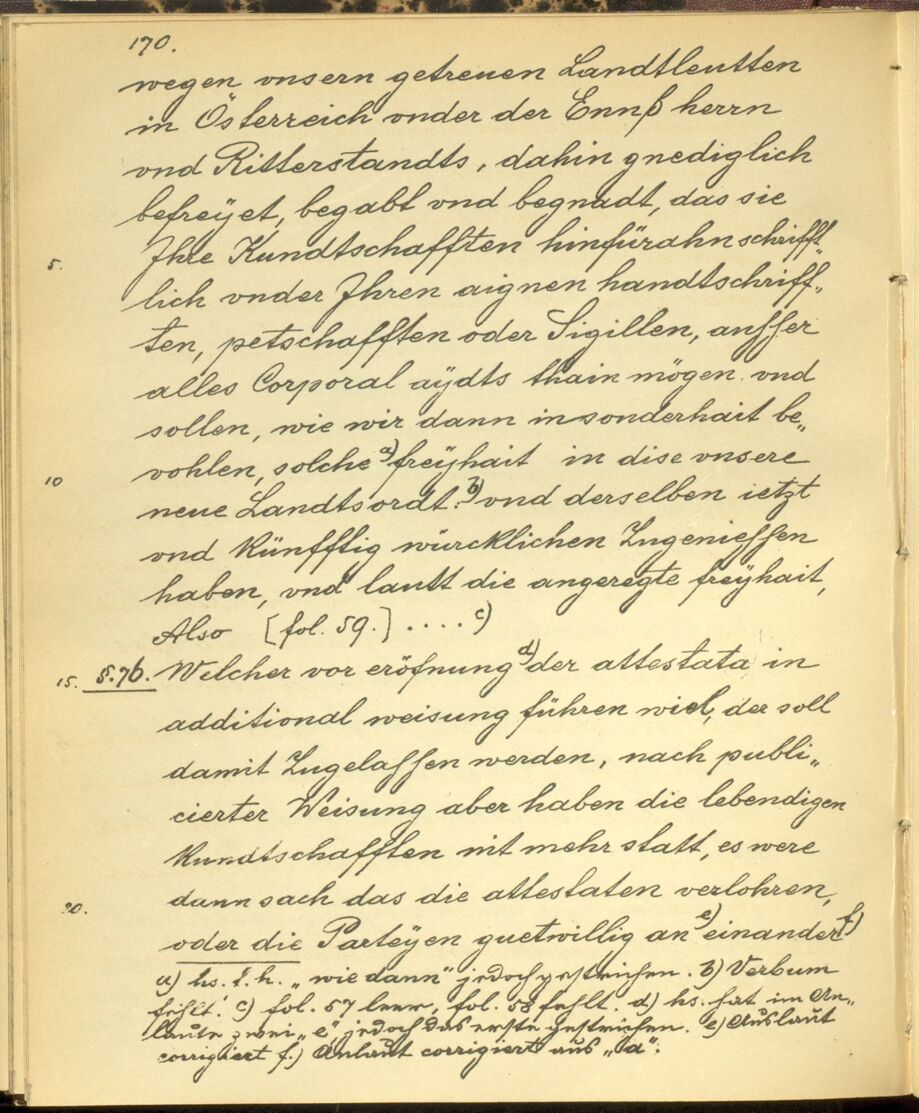 170.
wegen vnsern getreuen Landtleutten
in Österreich vnder der Ennß herrn
vnd Ritterstandts, dahin gnediglich
befreÿet, begabt vnd begnadt, das sie
5. Ihre Kundtschafften hinfürahn schrifft„
lich vnder Ihren aignen handtschriff„
ten, petschafften oder Sigillen, ausser
alles Corporal aÿdts thain mögen vnd
sollen, wie wir dann in sonderhait be„
10 vohlen, solche a) freÿhait in dise vnsere
neue Landtsordt. b) vnd derselben ietzt
vnd künfftig würcklichen Zugeniessen
haben, vnd lautt die angeregte freÿhait,
Also [fol. 59.] .... c)
15. §. 76. Welcher vor eröfnung d) der attestata in
additional weisung führen wiel, der soll
damit Zugelassen werden, nach publi„
cierter Weisung aber haben die lebendigen
Kundtschafften nit mehr statt, es were
20. dann sach das die attestaten verlohren,
oder die Parteÿen guetwillig an e) einander f)
a) hs. t. h. „wie dann" jedoch gestrichen. b) Verbum
fehlt! c) fol. 57 leer, fol. 58 fehlt. d) hs. hat im An„
laute zwei „e" jedoch das erste gestrichen. e) Auslaut
corrigiert f.) Anlaut corrigiert aus „a".